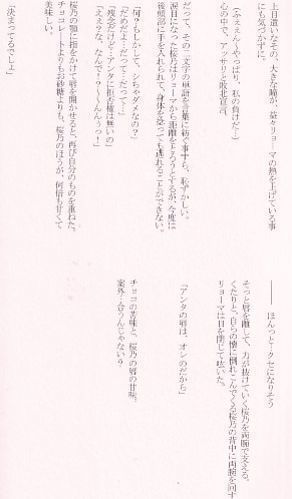 上目遣いなその、大きな瞳が、益々リョーマの熱を上げている事
にも気づかずに。
(ふええん〜やっぱり、私の負けだー)
心の中で、アッサリと敗北宣言。
だって、その二文字の単語を言葉に紡ぐ事すら、恥ずかしい。
涙目になった桜乃はリョーマから距離をとろうとするが、今度は
後頭部に手を入れられて、身体を捩っても逃れることができない。
「何？もしかして、シちゃダメなの？」
「だめだよ…だって…だって…」
「残念だけど…アンタに拒否権は無いの」
「ええっな、なんで！？〜んんんぅっ！」
桜乃の顎に指をかけて唇を開かせると、再び自分のものを重ねた。
チョコレートよりもお砂糖よりも、桜乃のほうが、何倍も甘くて
美味しい。
「決まってるでしょ」
―― ほんっと…クセになりそう
そっと唇を離して、力が抜けていく桜乃を両腕で支える。
くたりと、自らの懐に倒れこんでくる桜乃の背中に両腕を回す
リョーマは目を閉じて呟いた。
「アンタの唇は、オレのだから」
チョコの苦味と、桜乃の唇の甘味。
案外…合うんじゃない？